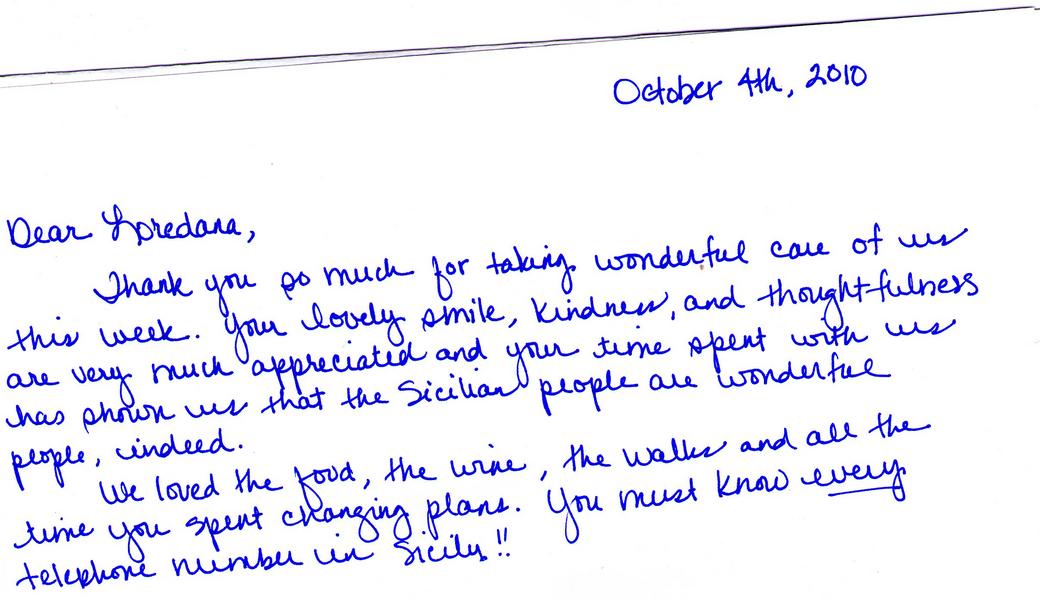 October 4th, 2010
Dear Loredana,
Thank you so much for taking wonderful care of us
this week. Your lovely smile, kindness, and thoughtfulness
are very much appreciated and your time spent with us
has shown us that the Sicilian people are wonderful
people, indeed.
We loved the food, the wine, the walks and all the
time you spent changing plans. You must know every
telephone number in Sicily!!